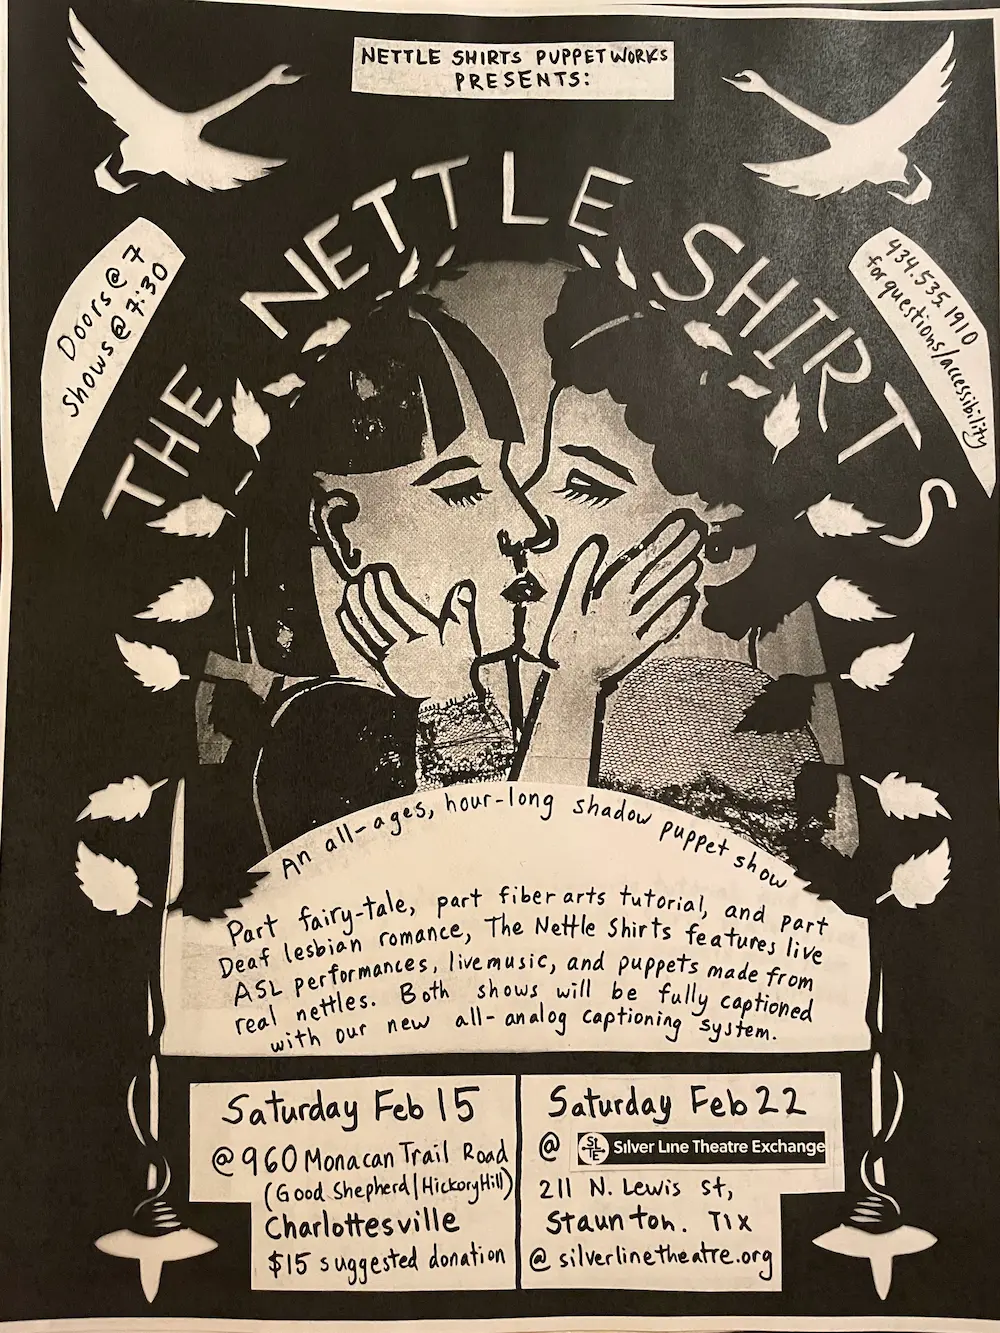 NETTLE SHIRTS PUPPETWORKS
PRESENTS:
THE NETTLE SHIRTS
Doors @ 7
Shows @ 7:30
434.535.1910
for questions/accessibility
An all-ages, hour-long shadow puppet show
Part fairy-tale, part fiber arts tutorial, and part
Deaf lesbian romance, The Nettle Shirts features live
ASL performances, live music, and puppets made from
real nettles. Both shows will be fully captioned
with our new all-analog captioning system.
Saturday Feb 15
@ 960 Monacan Trail Road
(Good Shepherd/Hickory Hill)
Charlottesville
$15 suggested donation
Saturday Feb 22
@ SLTE Silver Line Theatre Exchange
211 N. Lewis St,
Staunton. Tix
@ silverlinetheatre.org